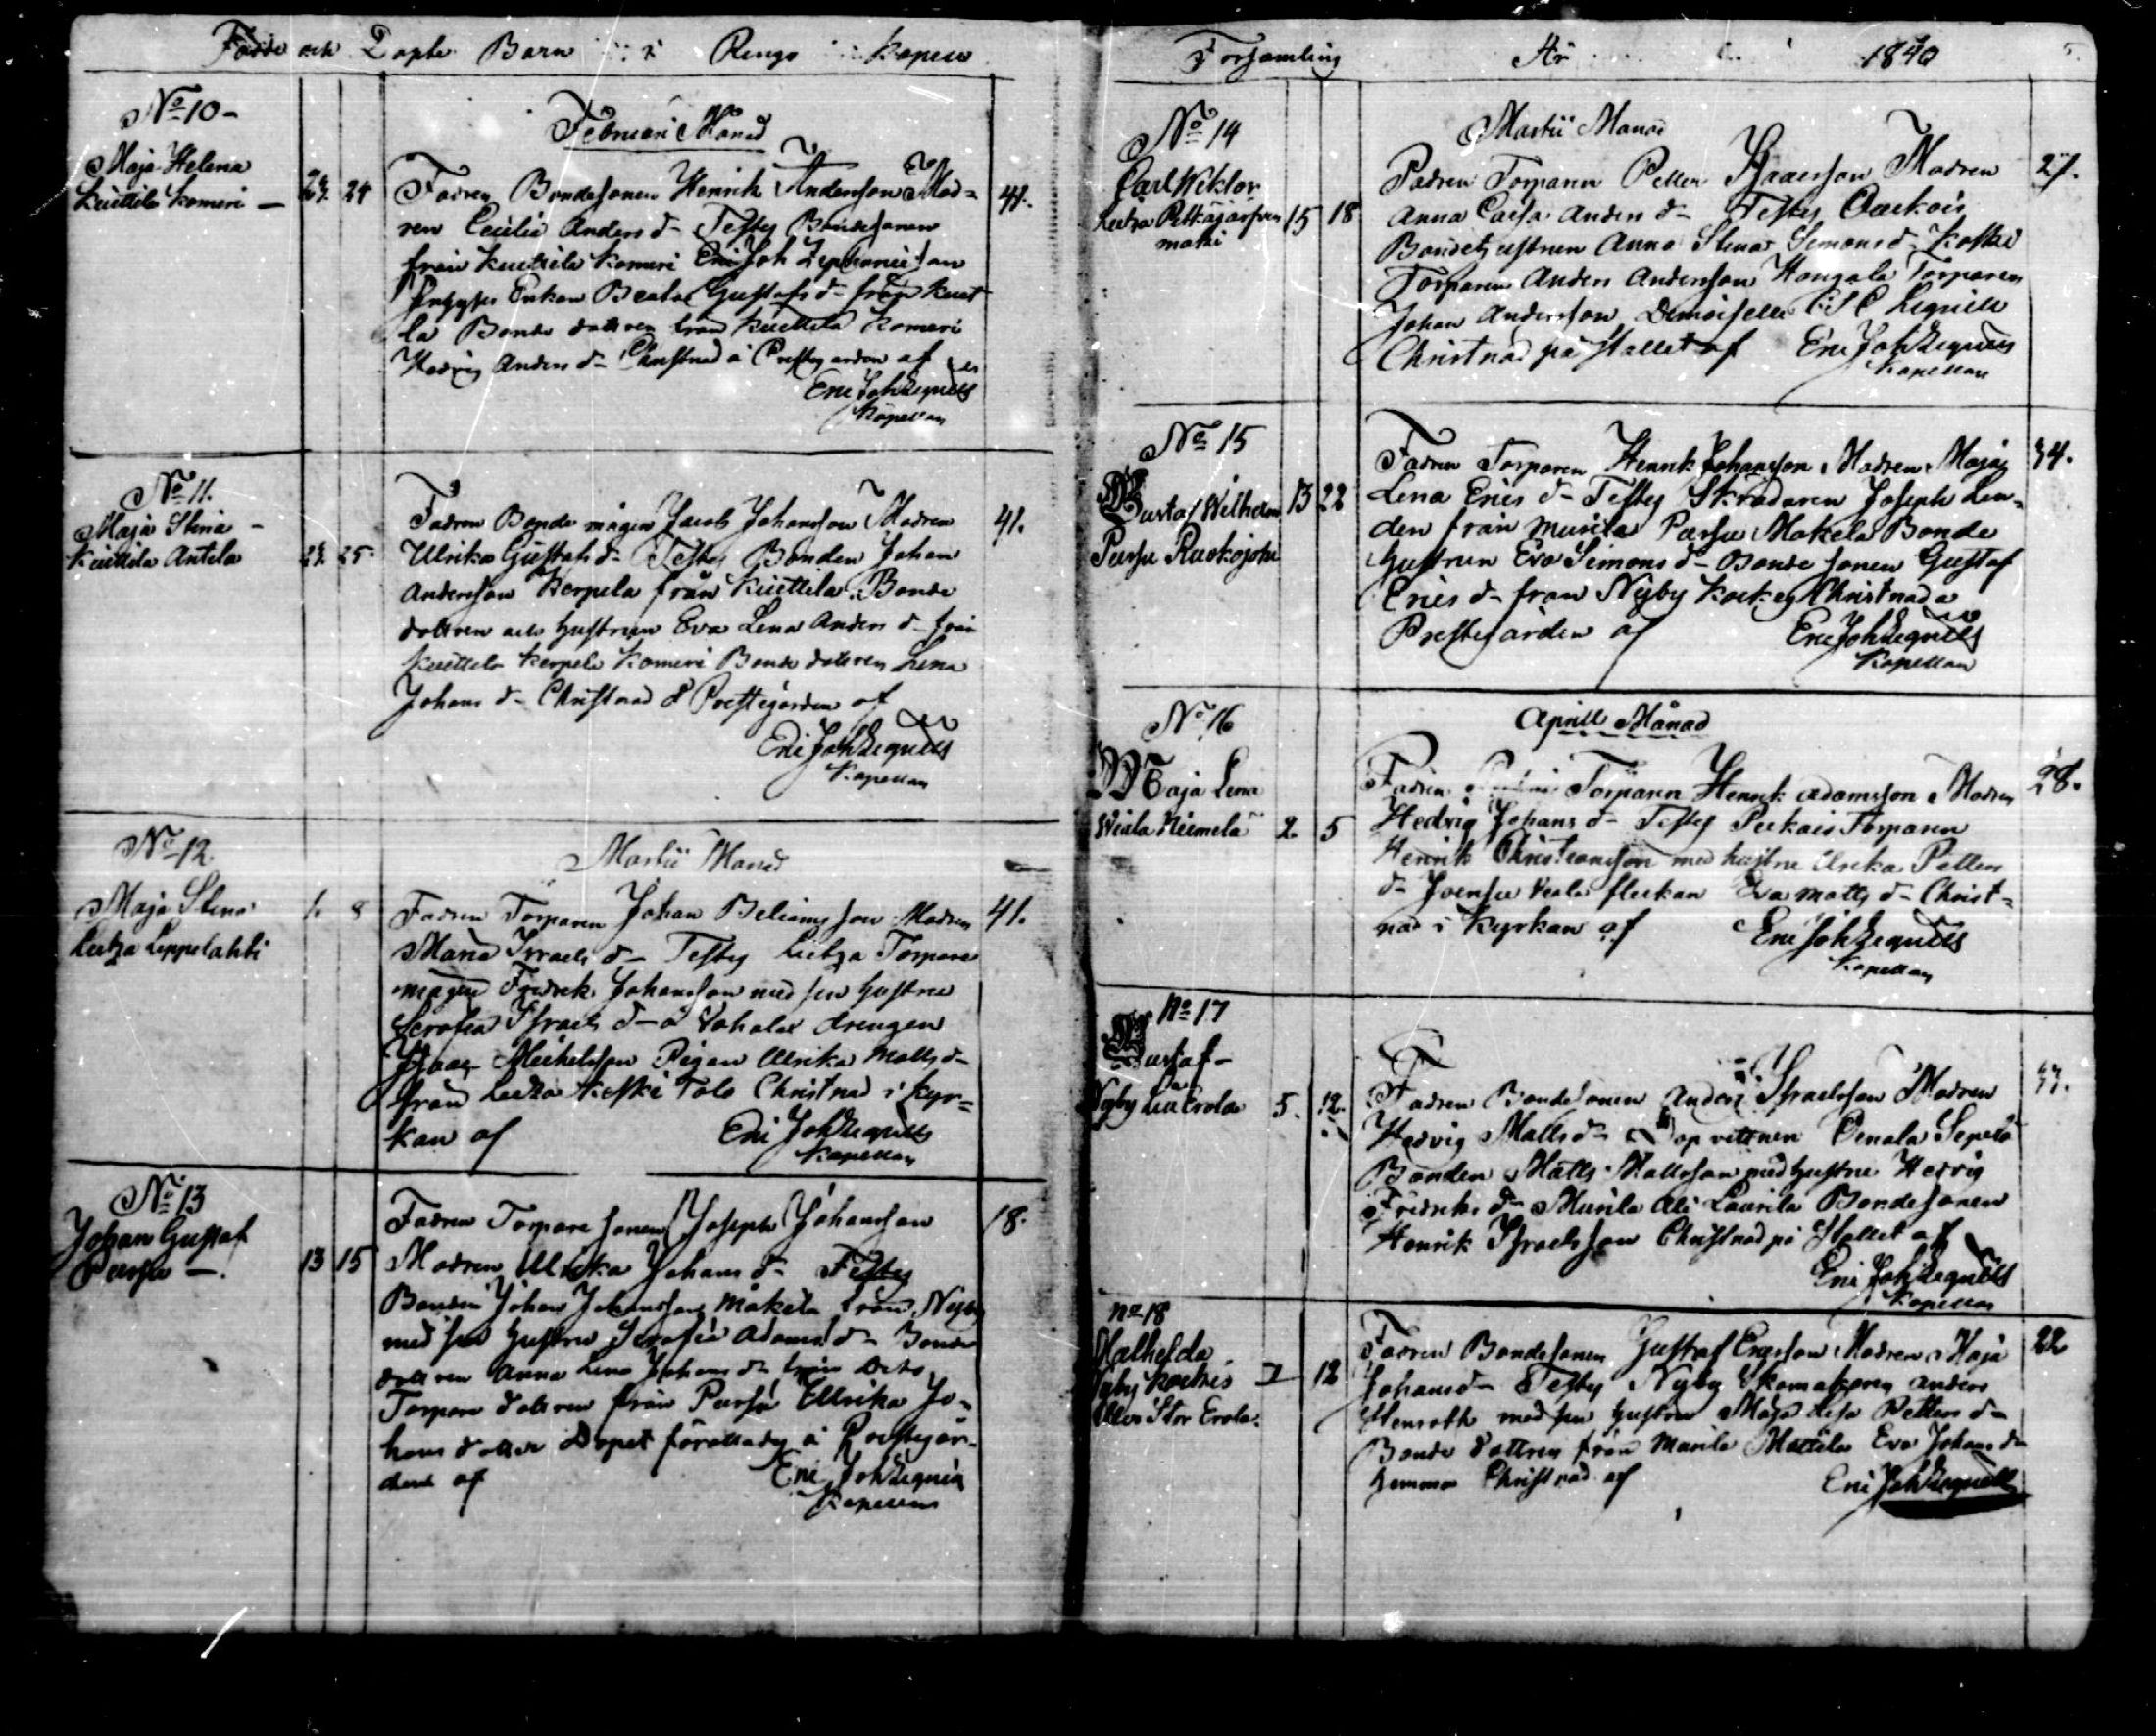 Födde och Döpte Barn i Rengo Kapell
No 10 -
Maja Helena
Kuittila Komeri -
23. 24
Februari Månad
Fadren Bondesonen Henrik Andersson Mod-
ren Cecilia Anders d- Testes Bondesonen
från Kuittila Komeri Eric Joh
Enkan Beata Gustafs d- från Kuit
la Bonde dottren från Kuittila Komeri
Hedvig Anders d- Christnad å Prestgården af
Eric Joh Zeqvell
Kapellan
41.
No 11.
Maja Stina -
Kuittila Antila
23. 25.
Fadren Bonde mågen Jacob Johansson Modren
Ulrika Gustafs d- Testes Bonden Johan
Andersson Kerpela från Kuittila Bonde
dottren och hustrun Eva Lena Anders d- från
Kuittila Kerpela Komeri Bonde dottren Lena
Johans d- Christnad å Prestegården af
Eric Joh Zeqvell
Kapellan
41.
No 12
Maja Stina
Luitza Leppelahti
1. 8
Martii Månad
Fadren Torparen Johan Beliamsson Modren
Maria Israels d- Testes Luitza Torpare
mågen Fredrik Johansson med sin hustru
Serafia Israels d- å Vahala drengen
Isaac Michelsson Pigan Ulrika Matts d-
från Luitza Keski Talo Christnad i Kyr=
kan af
Eric Joh Zeqvell
Kapellan
41.
No 13
Johan Gustaf
Pursu -.
13 15
Fadren Torpare sonen Joseph Johansson
Modren Ulrika Johans d- Testes
Bonden Johan Johansson Mäkelä från Nyby
med sin hustru Serafia Adams d- Bonde
dottren Anna Lena Johans d- från dito
Torpare dottren från Pursu Ullrika Jo-
hans dotter Dopet förättades å Prestgår-
den af
Eric Joh Zeqvell
Kapellan
18.
Församling År 1840
No 14
Carl Wiktor
Luitza Pitkäjärfven
mäki
15 18
Martii Månad
Fadren Torparen Petter Isaacsson Modren
Anna Caisa Anders d- Testes
Bonde hustrun Anna Stina Simons d- Koski
Torparen Anders Andersson Hongala Torparen
Johan Andersson Demoiselle Zeqvell
Christnad på stället af Eric Joh Zeqvell
Kapellan
27.
No 15
Gustaf Wilhelm
Pursu Ruokojoki
13 22
Fadren Torparen Henrik Johansson Modren Maja
Lena Erics d- Testes Skräddaren Joseph Lin-
den från Murila Pursu Mäkelä Bonde
hustrun Eva Simons d- Bonde sonen Gustaf
Erics d- från Nyby Christnad å
Prestegården af
Eric Joh Zeqvell
Kapellan
34.
No 16
Maja Lena
Wiala Niemelä
2. 5
Aprill Månad
Fadren Torparen Henrik Adamsson Modren
Hedvig Johans d- Testes Torparen
Henrik Christiansson med hustru Ulrika Petters
d- Joensuu Viala flickan Eva Matts d- Christ-
nad i Kyrkan af
Eric Joh Zeqvell
Kapellan
28.
No 17
Gustaf -
Nyby Erola
5. 12.
Fadren Bondesonen Anders Israelsson Modren
Hedvig Matts d- Dopvittnen Sepelä
Bonden Matts Mattsson med hustru Hedvig
Fredriks d- Murila Ali Laurila Bondesonen
Henrik Israelsson Christnad på Stället af
Eric Joh Zeqvell
Kapellan
No 18
Mathilda
Nyby
eller Stor Erola.
7 12
Fadren Bondesonen Gustaf Ericsson Modren Maja
Johans d- Testes Nyby Skomakaren Anders
Stenroth med sin hustru Maja Lisa Petters d-
Bonde dottren från Murila Mattila Eva Johans d-
hemma Christnad af
Eric Joh Zeqvell
22